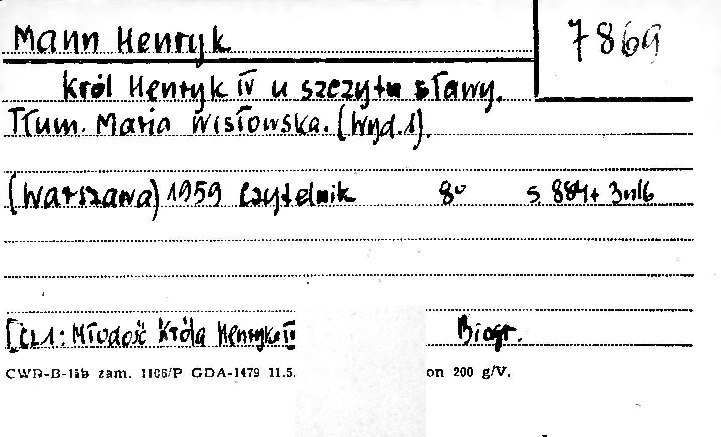 Mann Henryk
7869
Król Henryk IV u szczytu sławy.
Tłum. Maria Wisłowska. (Wyd. 1).
(Warszawa) 1959 Czytelnik 8° s 884+3nlb
[Cz. 1: Młodość Króla Henryka IV Biogr.
CWD-B-1åb zam. 1106/P GDA-1479 11.5. on 200 g/V.